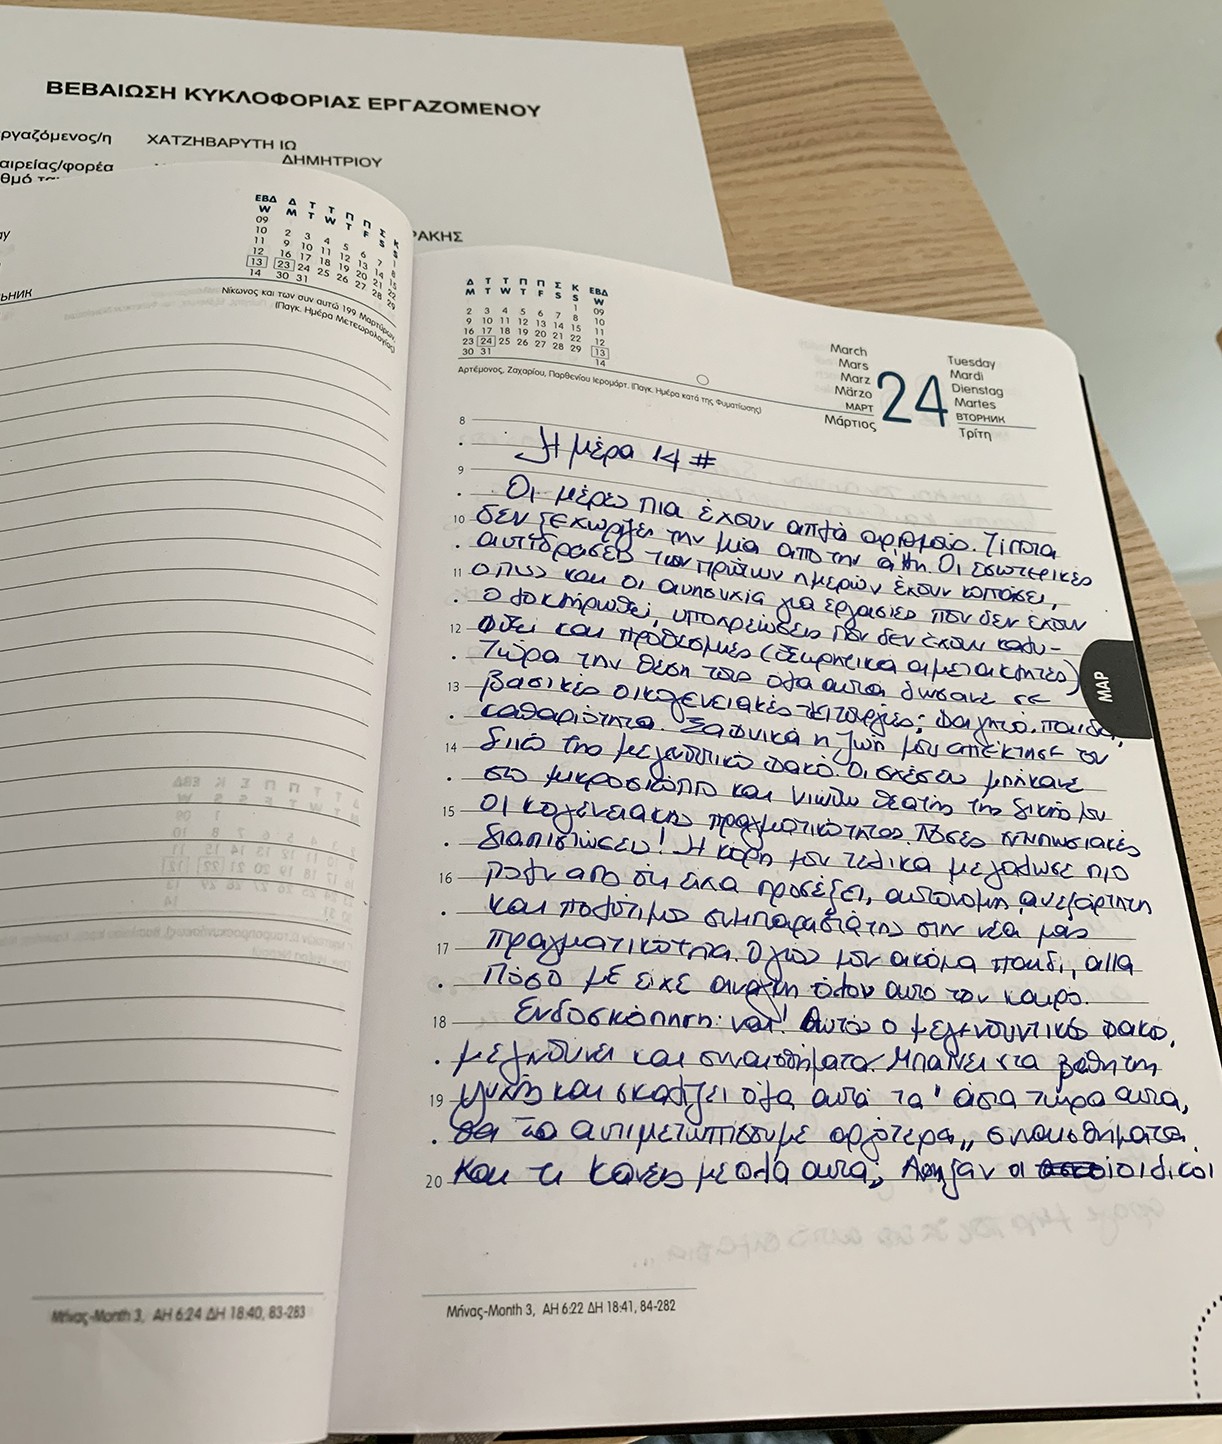 ΒΕΒΑΙΩΣΗ ΚΥΚΛΟΦΟΡΙΑΣ ΕΡΓΑΖΟΜΕΝΟΥ
ργαζόμενος/η ΧΑΤΖΗΒΑΡΥΤΗ ΙΩ
ΔΗΜΗΤΡΙΟΥ
αιρείας/φορέα
ΡΑΚΗΣ
ΕΒΔ Δ Τ Τ Π Π Σ Κ
W M T W T F S S
09 1
10 2 3 4 5 6 7 8
11 9 10 11 12 13 14 15
12 16 17 18 19 20 21 22
13 23 24 25 26 27 28 29
14 30 31
ЬНИК
Νίκωνος και των συν αυτώ 199 Μαρτύρων,
(Παγκ. Ημέρα Μετεωρολογίας)
Μήνας-Month 3, ΑΗ 6:24 ΔΗ 18:40, 83-283
Δ Τ Τ Π Π Σ Κ ΕΒΔ
M T W T F S S W
1 09
2 3 4 5 6 7 8 10
9 10 11 12 13 14 15 11
16 17 18 19 20 21 22 12
23 24 25 26 27 28 29 13
30 31 14
Αρτέμονος, Ζαχαρίου, Παρθενίου Ιερομάρτ. (Παγκ. Ημέρα κατά της Φυματίωσης)
March
Mars
Marz
März
МАРТ
Μάρτιος
24
Tuesday
Mardi
Dienstag
Martes
ВТОРНИК
Τρίτη
ΜΑΡ
8 Ημέρα 14 #
9
Οι μέρες πια έχουν απλά αριθμούς. Τίποτα
10 δεν ξεχωρίζει την μία από την άλλη. Οι εσωτερικές
αντιδράσεις των πρώτων ημερών έχουν κοπάσει,
11 όπως και οι ανησυχία για εργασίες που δεν έχουν
ολοκληρωθεί, υποχρεώσεις που δεν έχουν καλυ-
12 φθεί και προθεσμίες (εξαιρετικά αμετακίνητες)
Τώρα την θέση τους όλα αυτά δώσανε σε
13 βασικές οικογενειακές λειτουργίες: φαγητό, παιδιά,
καθαριότητα. Ξαφνικά η ζωή μου απέκτησε τον
14 δικό της μεγεθυντικό φακό. Οι σχέσεις μπήκανε
στο μικροσκόπιο και νιώθω θεατής της δικής μου
15 οικογένειακης πραγματικότητας. Πόσες
διαπιστώσεις! Η κόρη μου τελικά μεγάλωσε πιο
16 από ότι είχα προσέξει, αυτόνομη, ανεξάρτητη
και πολύτιμος συμπαραστάτης στην νέα μας
17 πραγματικότητα. Ο γιος μου ακόμα παιδί, αλλα
πόσο με είχε ανάγκη όλον αυτό τον καιρό.
18 Ενδοσκόπηση: ναι! Αυτός ο μεγενθυντικός φακός,
μεγενθύνει και συναισθήματα. Μπαίνει στα βάθη της
19 ψυχής και σκαλίζει όλα αυτά τα "άσα τώρα αυτα,
θα τα αντιμετωπίσουμε αργότερα" συναισθήματα.
20 Και τι κάνεις με όλα αυτα; Λοιπόν οι ιδικοί
Μήνας-Month 3, ΑΗ 6:22 ΔΗ 18:41, 84-282